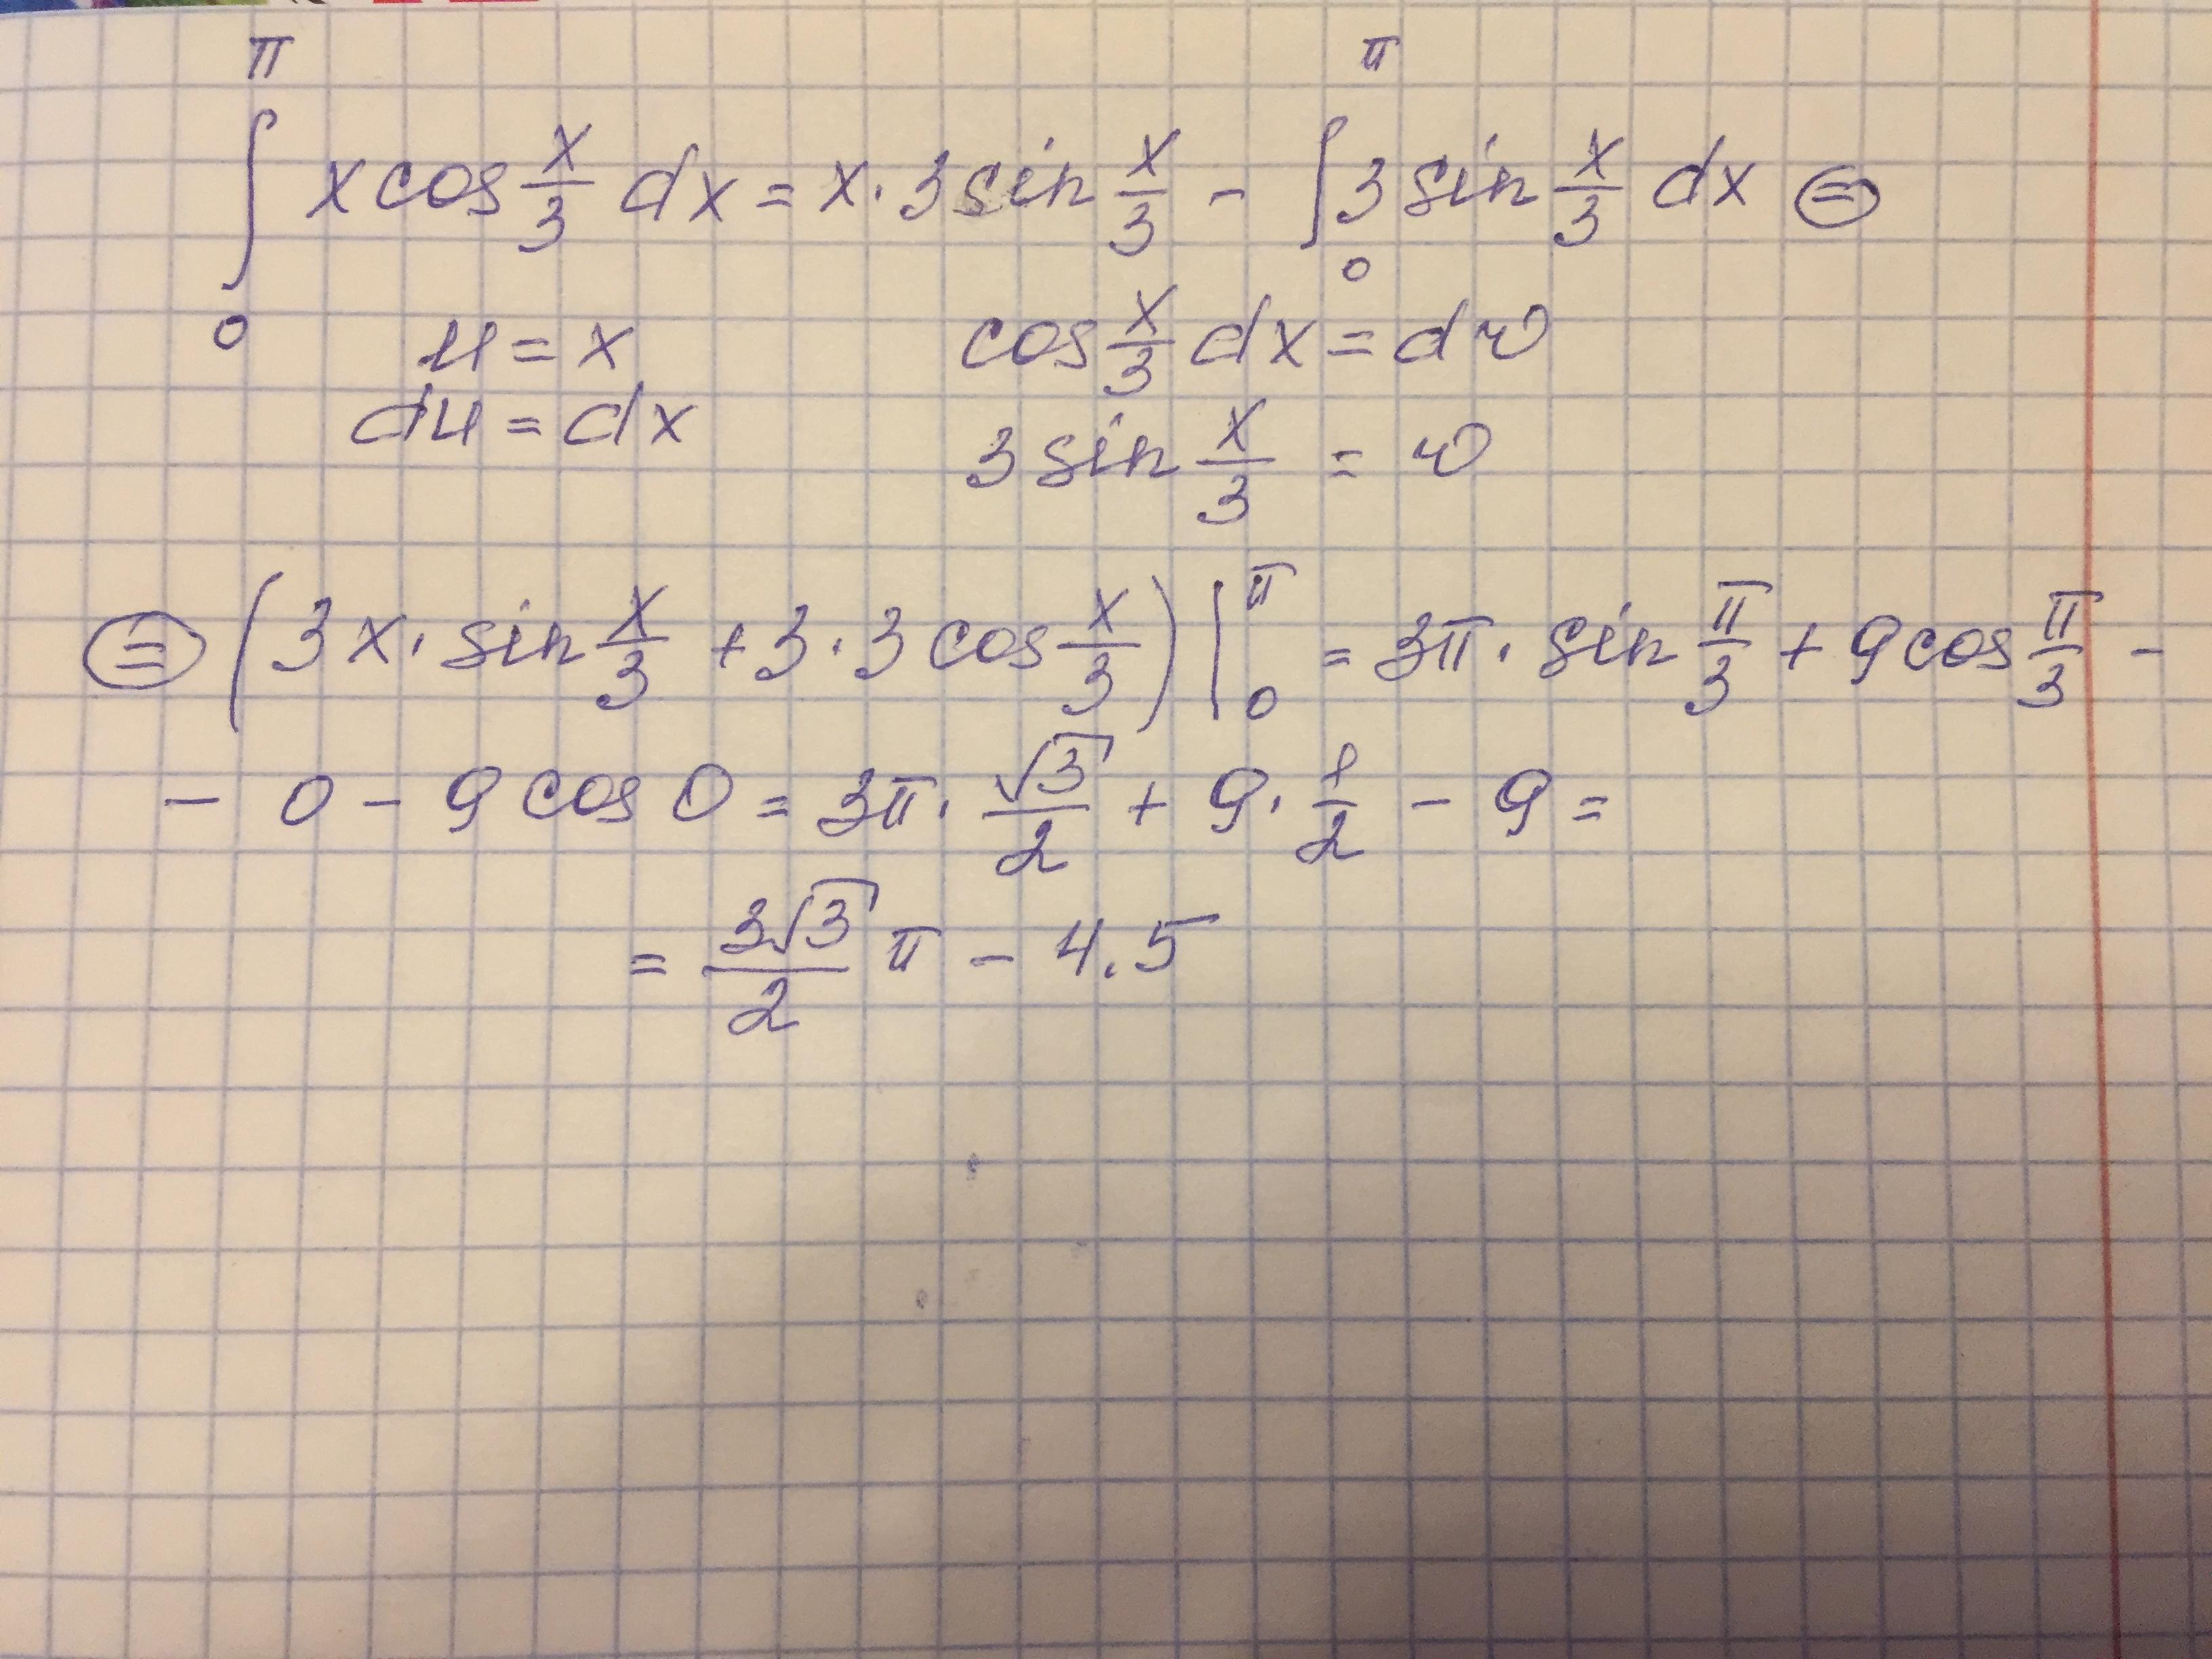 ∫₀^π x cos x/3 dx = x · 3 sin x/3 - ∫₀^π 3 sin x/3 dx ⊜
u = x cos x/3 dx = dv
du = dx 3 sin x/3 = v
⊜ (3x · sin x/3 + 3 · 3 cos x/3) |₀^π = 3π · sin π/3 + 9 cos π/3 -
- 0 - 9 cos 0 = 3π · √3/2 + 9 · 1/2 - 9 =
= 3√3/2 π - 4.5